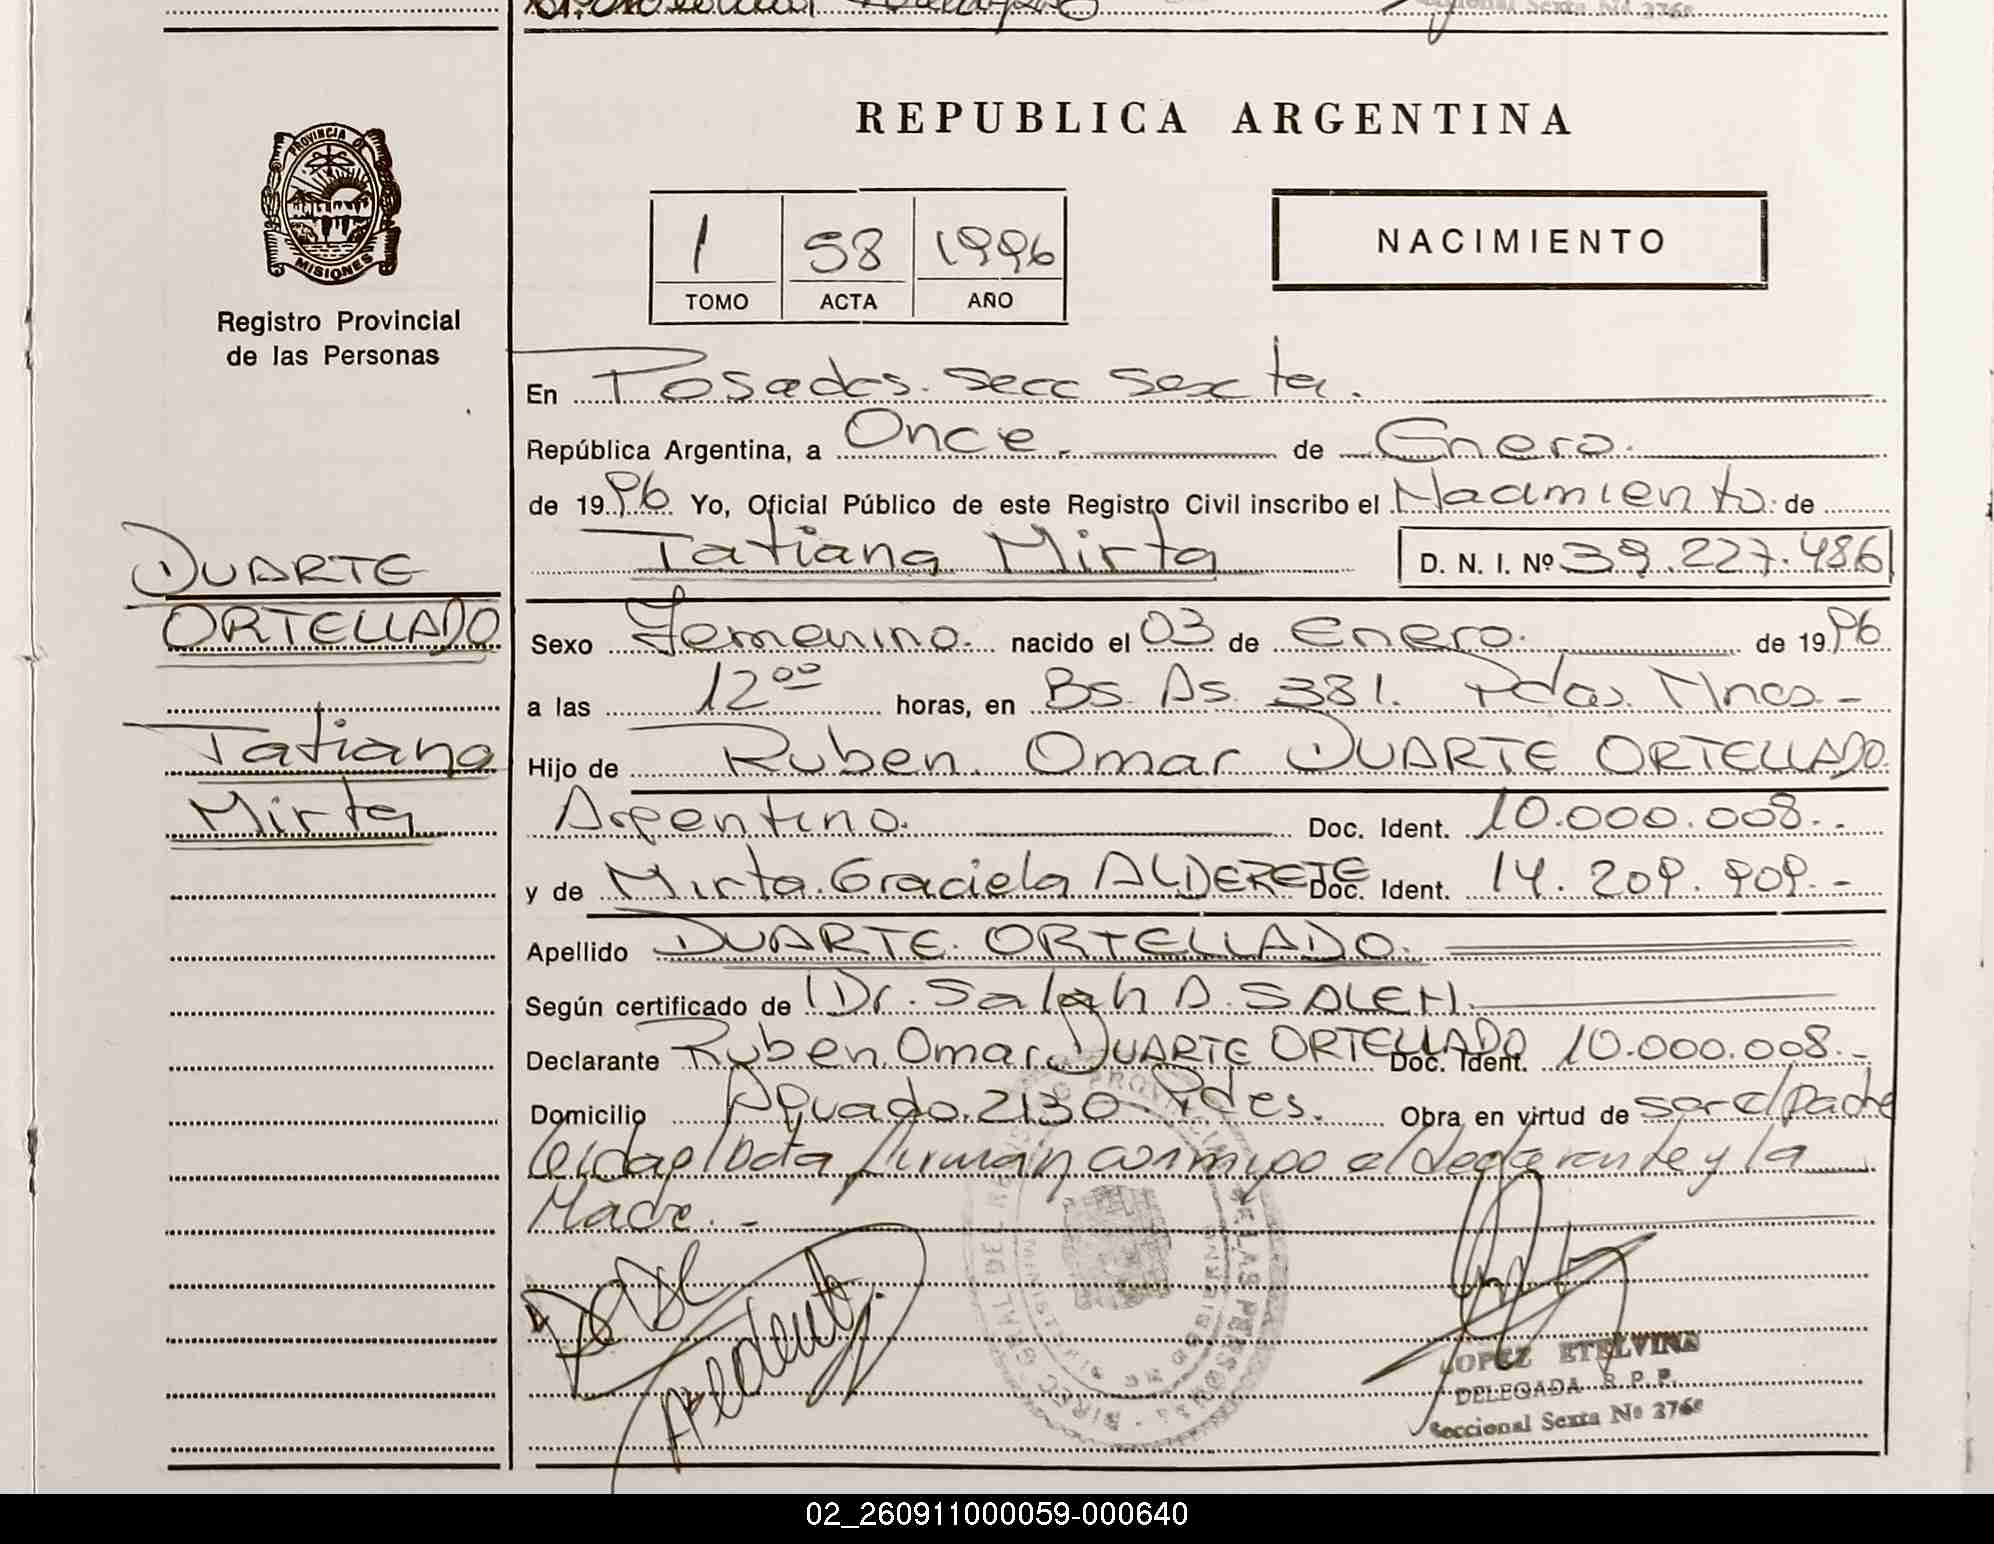 Seccional Sexta Nº 276º
PROVINCIA DE
MISIONES
Registro Provincial
de las Personas
DUARTE
ORTELLADO
Tatiana
Mirta
REPUBLICA ARGENTINA
1 58 1996
TOMO ACTA AÑO
NACIMIENTO
En Posadas. Secc Sexta.
República Argentina, a Once. de Enero.
de 1996 Yo, Oficial Público de este Registro Civil inscribo el Nacimiento de
Tatiana Mirta D. N. I. Nº 39.227.486
Sexo Femenino. nacido el 03 de Enero. de 1996
a las 12⁰⁰ horas, en Bs. As. 381. Pdas. Mnes.-
Hijo de Ruben Omar DUARTE ORTELLADO.
Argentino. Doc. Ident. 10.000.008.-
y de Mirta Graciela ALDERETE Doc. Ident. 14.209.909.-
Apellido DUARTE ORTELLADO.
Según certificado de Dr. Salah A. SALEH.
Declarante Ruben Omar DUARTE ORTELLADO Doc. Ident. 10.000.008.-
Domicilio Aguado 2130 Pdas. Obra en virtud de ser el padre
leida el Acta firman conmigo el declarante y la
Madre.-
LOPEZ ETELVINA
DELEGADA R.P.P.
Seccional Sexta Nº 276º
02_260911000059-000640